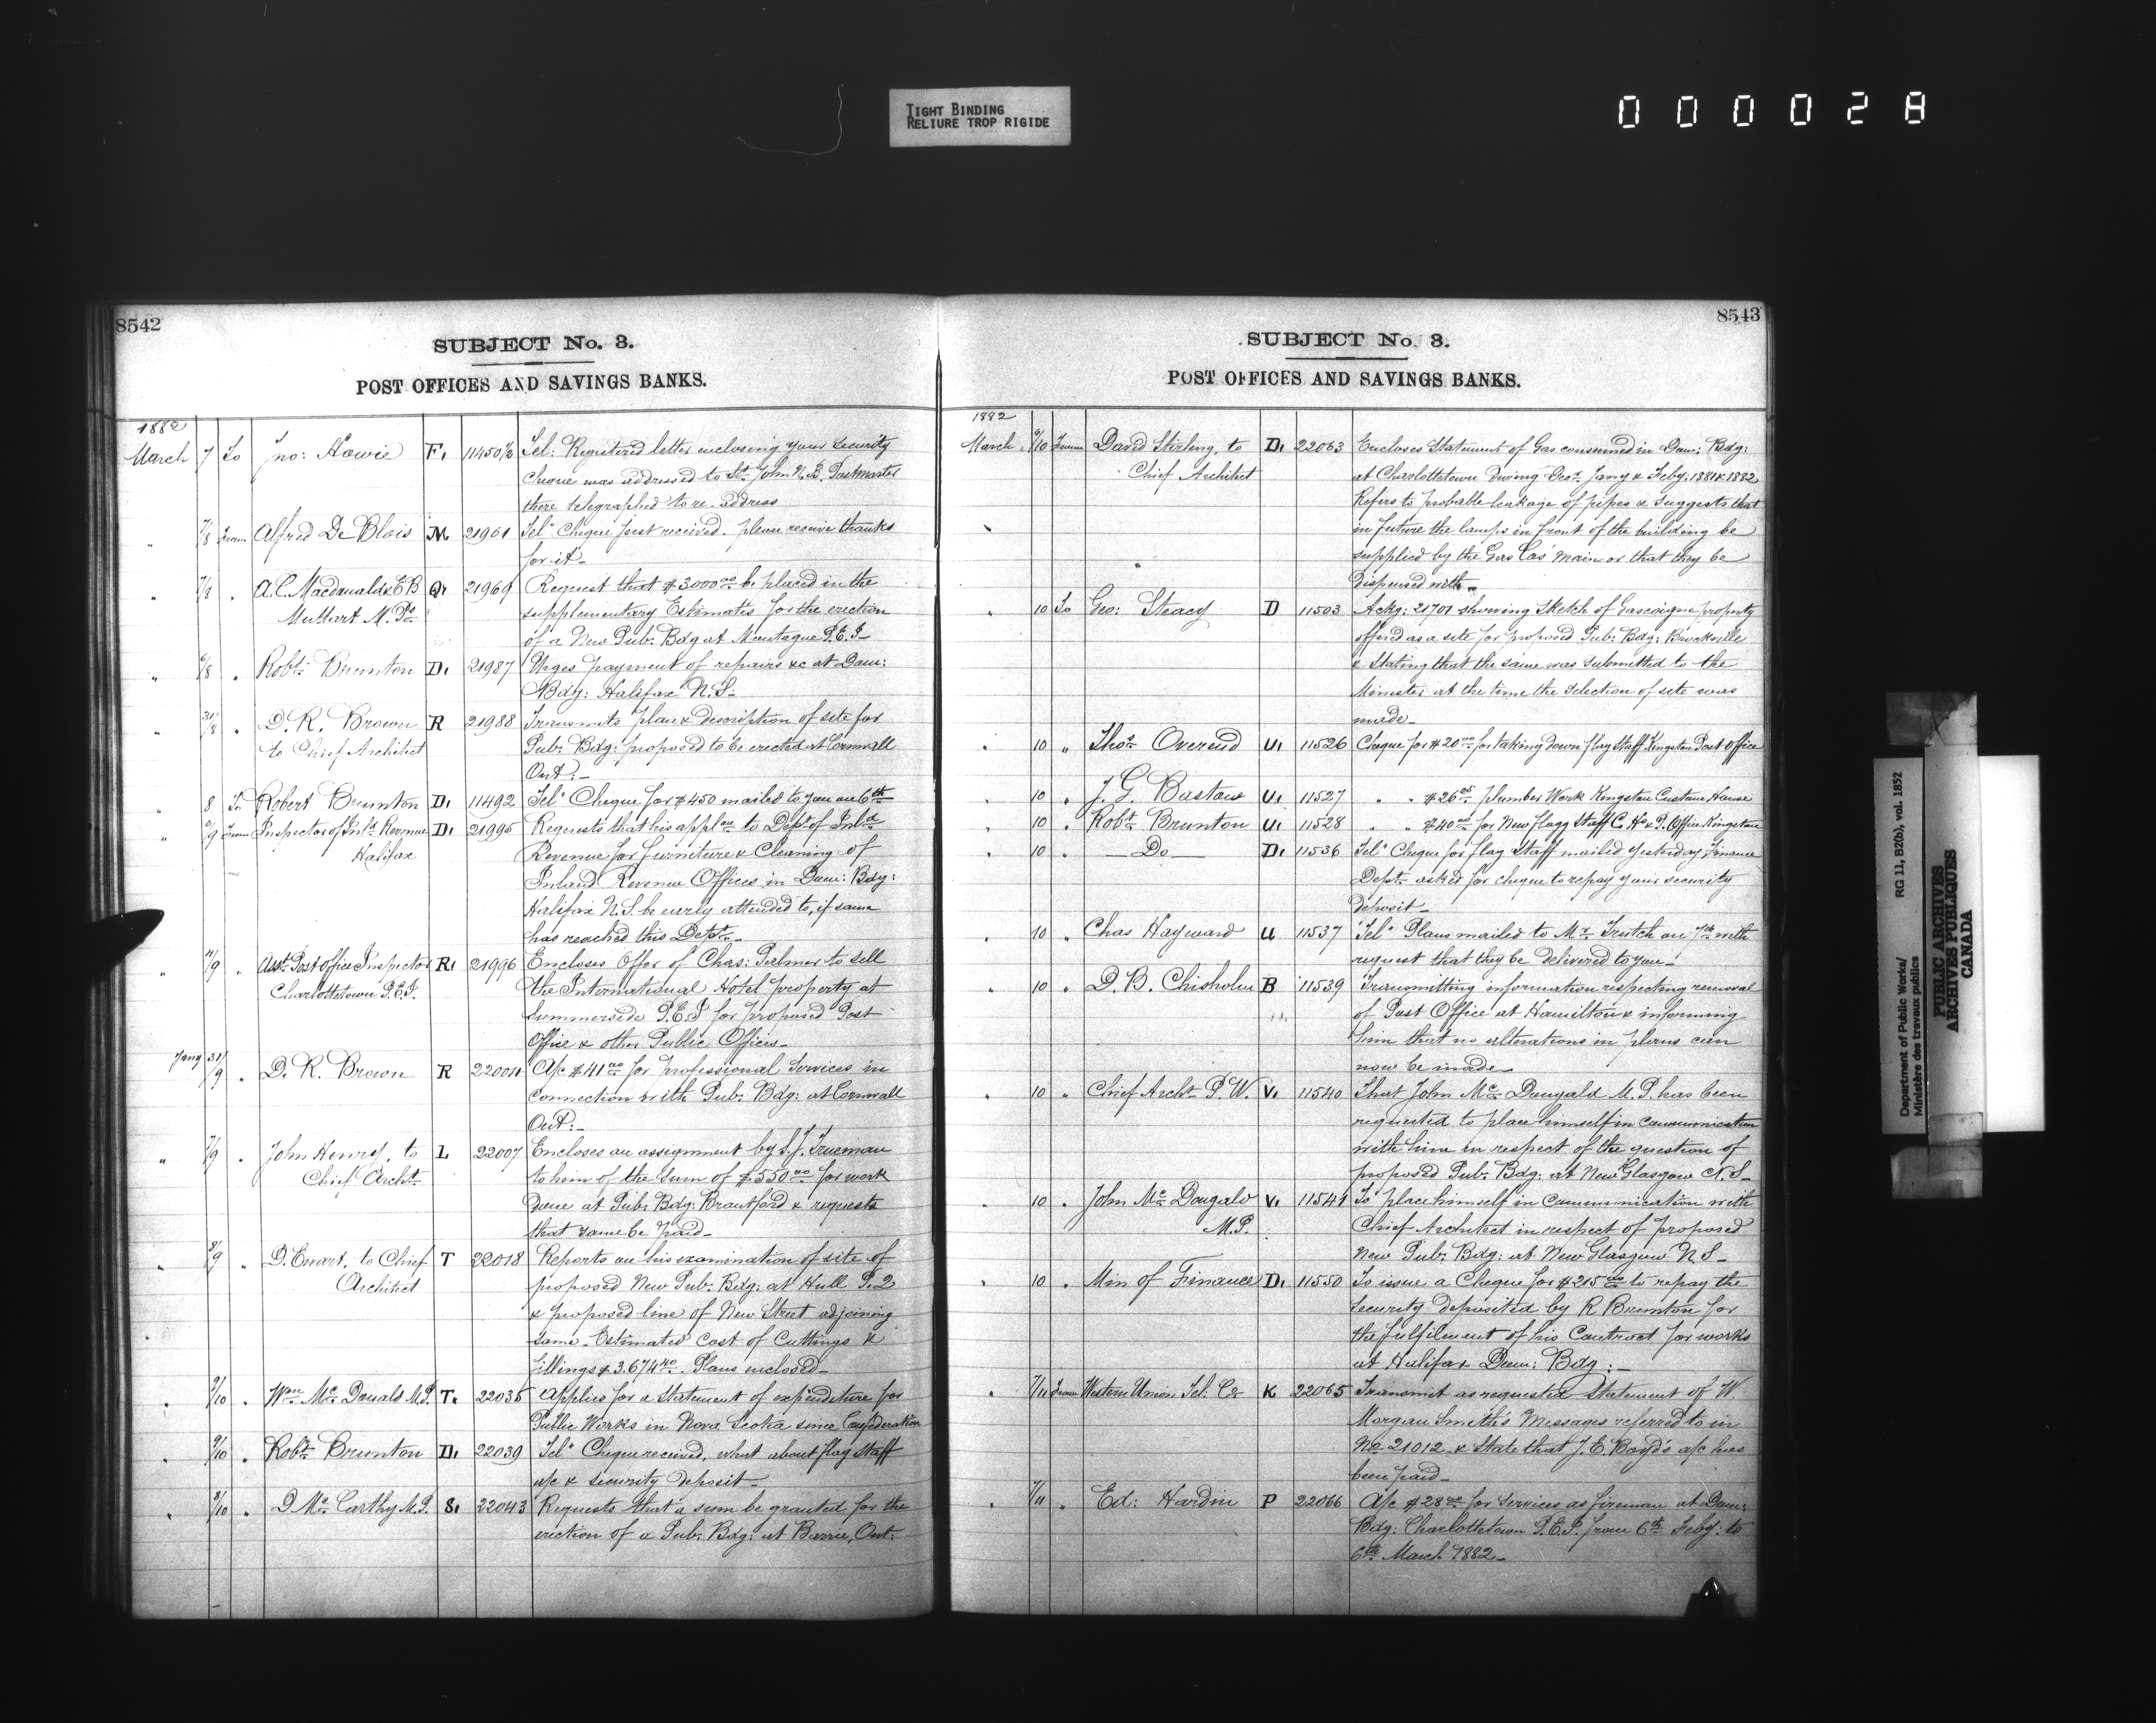 TIGHT BINDING
RELIURE TROP RIGIDE
000028
8542
SUBJECT No. 3.
POST OFFICES AND SAVINGS BANKS.
1882
March 7 To Jno: Howie F. 11450½ Tel: Registered letter enclosing your security
Cheque was addressed to St. John N.B. Postmaster
there telegraphed to re-address
" 7/8 From Alfred De Blois M 21961 Tel" Cheque just received. please receive thanks
for it-
" 7/8 " A.C. Macdonald & E B Q. 21969 Request that $3000.00 be placed in the
Muttart M.Ps supplementary Estimates for the erection
of a New Pub: Bdg at Montague P.E.I-
" 6/8 " Robt. Brunton D. 21987 Urges payment of repairs &c at Dom:
Bdg: Halifax N.S-
" 31/8 " D.R. Brown R 21988 Transmits plan & description of site for
to Chief Architect Pub: Bdg: proposed to be erected at Cornwall
Ont:-
" 8 To Robert Brunton D. 11492 Tel" Cheque for $450 mailed to you on 6th
" 6/9 From Inspector of Inld. Revenue D. 21995 Requests that his appl.on to Dept of Inld
Halifax Revenue for furniture & Cleaning of
Inland Revenue Offices in Dom: Bdg:
Halifax N.S. be early attended to, if same
has reached this Dept.-
" /9 " Asst. Post Office Inspector R. 21996 Encloses Offer of Chas: Palmer to sell
Charlottetown P.E.I. the International Hotel property at
Summerside P.E.I for proposed Post
Office & other Public Offices-
Jany 31/9 " D.R. Brown R 22004 A/c $41.00 for professional Services in
connection with Pub: Bdg: at Cornwall
Ont:-
" 7/9 " John Henry, to L 22007 Encloses an assignment by S.J. Trueman
Chief Archt- to him of the sum of $550.00 for work
Done at Pub: Bdg: Brantford & requests
that same be paid-
" 8/9 " D. Ewart, to Chief T 22018 Reports on his examination of site of
Architect proposed New Pub: Bdg: at Hull P.Q
& proposed line of New Street adjoining
same- Estimated Cost of Cuttings &
fillings $3.674.40. Plans enclosed-
" 9/10 " Wm. Mc Donald M.P. T. 22035 Applies for a Statement of expenditure for
Public Works in Nova Scotia since Confederation
" 9/10 " Robt. Brunton D. 22039 Tel" Cheque received, what about flag Staff
a/c & security deposit-
" 8/10 " D. Mc Carthy M.P. S. 22043 Requests that a sum be granted for the
erection of a Pub: Bdg: at Barrie, Ont:
8543
SUBJECT No. 3.
POST OFFICES AND SAVINGS BANKS.
1882
March 6/10 From David Stirling, to D. 22063 Encloses Statement of Gas consumed in Dom: Bdg:
Chief Architect at Charlottetown During Decr. Jany & Feby: 1881 & 1882
Refers to probable leakage of pipes & suggests that
in future the lamps in front of the building be
supplied by the Gas Cos' main or that they be
Dispensed with-
" 10 To Geo: Steacy D 11503 Ackg: 21701 showing Sketch of Gascoigne property
offered as a site for proposed Pub: Bdg: Brockville
& Stating that the same was submitted to the
Minister at the time the selection of site was
made-
" 10 " Thos. Overend U. 11526 Cheque for $20.00 for taking down flag staff Kingston Post Office
" 10 " J.G. Bastow U. 11527 " " $26.05 plumber Work Kingston Custom House
" 10 " Robt. Brunton U. 11528 " " $40.00 for New flagg Staff C. Ho & P. Office Kingston
" 10 " -Do- D. 11536 Tel" Cheque for flag staff mailed yesterday, Finance
Dept. asked for cheque to repay your security
deposit-
" 10 " Chas Hayward U 11537 Tel" Plans mailed to Mr. Trutch on 7th with
request that they be Delivered to you-
" 10 " D.B. Chisholm B 11539 Transmitting information respecting removal
of Post Office at Hamilton & informing
him that no alterations in plans can
now be made-
" 10 " Chief Archt. P.W. V. 11540 That John Mc Dougald M.P. has been
requested to place himself in communication
with him in respect of the question of
proposed Pub: Bdg: at New Glasgow N.S-
" 10 " John Mc Dougald V. 11541 To place himself in communication with
M.P. Chief Architect in respect of proposed
New Pub: Bdg: at New Glasgow N.S-
" 10 " Min of Finance D. 11550 To issue a Cheque for $215.00 to repay the
security deposited by R Brunton for
the fulfilment of his Contract for works
at Halifax Dom: Bdg:-
" 7/11 From Western Union Tel. Co K 22065 Transmit as requested Statement of W.
Morgan Smith's Messages referred to in
No. 21012 & State that J.E. Boyd's a/c has
been paid-
" 7/11 " Ed: Hardin P 22066 A/c $28.00 for Services as fireman at Dom:
Bdg: Charlottetown P.E.I. from 6th Feby: to
6th March 1882-
Department of Public Works/ RG 11, B2(b), vol. 1852
Ministère des travaux publics
PUBLIC ARCHIVES
ARCHIVES PUBLIQUES
CANADA